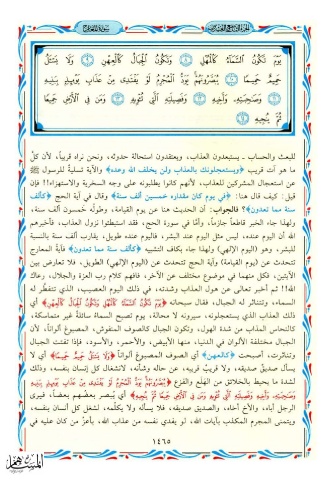 سورة المعارج
يَوْمَ تَكُونُ السَّمَاءُ كَالْمُهْلِ ۝ وَتَكُونُ الْجِبَالُ كَالْعِهْنِ ۝ وَلَا يَسْئَلُ
حَمِيمٌ حَمِيمًا ۝ يُبَصَّرُونَهُمْ يَوَدُّ الْمُجْرِمُ لَوْ يَفْتَدِى مِنْ عَذَابِ يَوْمِئِذٍ بِبَنِيهِ
۝ وَصَاحِبَتِهِ وَأَخِيهِ ۝ وَفَصِيلَتِهِ الَّتِى تُؤْوِيهِ ۝ وَمَنْ فِى الْأَرْضِ جَمِيعًا
ثُمَّ يُنْجِيهِ
للبعث والحساب ـ يستبعدون العذاب، ويعتقدون استحالة حدوثه، ونحن نراه قريباً، لأن كلّ
ما هو آت قريب ﴿ويستعجلونك بالعذاب ولن يخلف الله وعده﴾ والآية تسلية للرسول ﷺ
عن استعجال المشركين للعذاب، لأنهم كانوا يطلبونه على وجه السخرية والاستهزاء!! فإن
قيل: كيف قال هنا: ﴿في يوم كان مقداره خمسين ألف سنة﴾ وقال في آية الحج ﴿كألف
سنة مما تعدون﴾؟ فالجواب: أن الحديث هنا عن يوم القيامة، وطوله خمسون ألف سنة،
ولهذا جاء الخبر قاطعاً جازماً، وأما في سورة الحج، فقد استبطئوا نزول العذاب، فأخبرهم
الله أن اليوم عنده، ليس مثل اليوم عند البشر، فاليوم عنده طويل، يقارب ألف سنة بالنسبة
للبشر، وهو (اليوم الإلهي) ولهذا جاء بكاف التشبيه ﴿كألف سنة مما تعدون﴾ فآية المعارج
تتحدث عن (يوم القيامة) وآية الحج تتحدث عن (اليوم الإلهي) الطويل، فلا تعارض بين
الآيتين، فكل منهما في موضوع مختلف عن الآخر، فافهم كلام رب العزة والجلال، رعاك
الله!! ثم أخبر تعالى عن هول العذاب وشدته، في ذلك اليوم العصيب، الذي تتفطر له
السماء، وتتناثر له الجبال، فقال سبحانه ﴿يَوْمَ تَكُونُ السَّمَاءُ كَالْمُهْلِ وَتَكُونُ الْجِبَالُ كَالْعِهْنِ﴾ أي
ذلك العذاب الذي يستعجلونه، سيرونه لا محالة، يوم تصبح السماء سائلة غير متماسكة،
كالنحاس المذاب من شدة الهول، وتكون الجبال كالصوف المنفوش، المصبوغ ألواناً، لأن
الجبال مختلفة الألوان في الدنيا، منها الأبيض، والأحمر، والأسود، فإذا تفتت الجبال
وتناثرت، أصبحت ﴿كالعهن﴾ أي الصوف المصبوغ ألواناً ﴿وَلَا يَسْئَلُ حَمِيمٌ حَمِيمًا﴾ أي لا
يسأل صديق صديقه، ولا قريب قريبه، عن حاله وشأنه، لانشغال كل إنسان بنفسه، وذلك
لشدة ما يحيط بالخلائق من الهلع والفزع ﴿يُبَصَّرُونَهُمْ يَوَدُّ الْمُجْرِمُ لَوْ يَفْتَدِى مِنْ عَذَابِ يَوْمِئِذٍ بِبَنِيهِ
وَصَاحِبَتِهِ وَأَخِيهِ وَفَصِيلَتِهِ الَّتِى تُؤْوِيهِ وَمَنْ فِى الْأَرْضِ جَمِيعًا ثُمَّ يُنْجِيهِ﴾ أي يبصر بعضهم بعضاً، فيرى
الرجل أباه، والأخ أخاه، والصديق صديقه، فلا يسأله ولا يكلمه، لشغل كل إنسان بنفسه،
ويتمنى المجرم المكذب بآيات الله، لو يفدي نفسه من عذاب الله، بأعز من كان عليه في
١٤٦٥